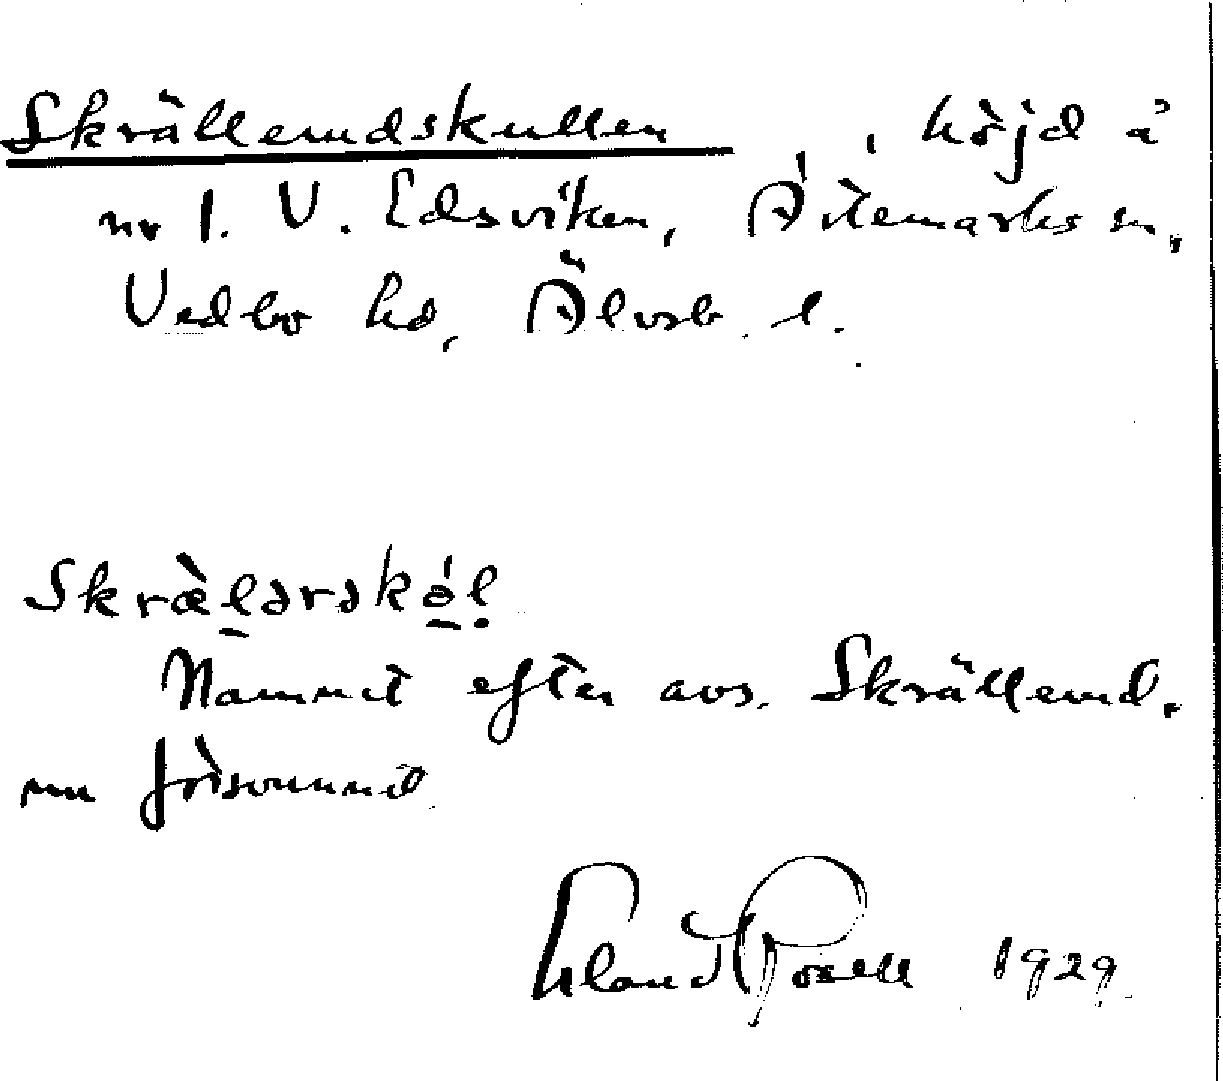 Skrällerudskullen, höjd å
nr 1. V. Edsviken, Ärtemarks sn,
Vedbo hd, Älvsb. l.
Skrælərskól
Namnet efter avs. Skrällerud,
nu försvunnet
Erland Rosell 1929